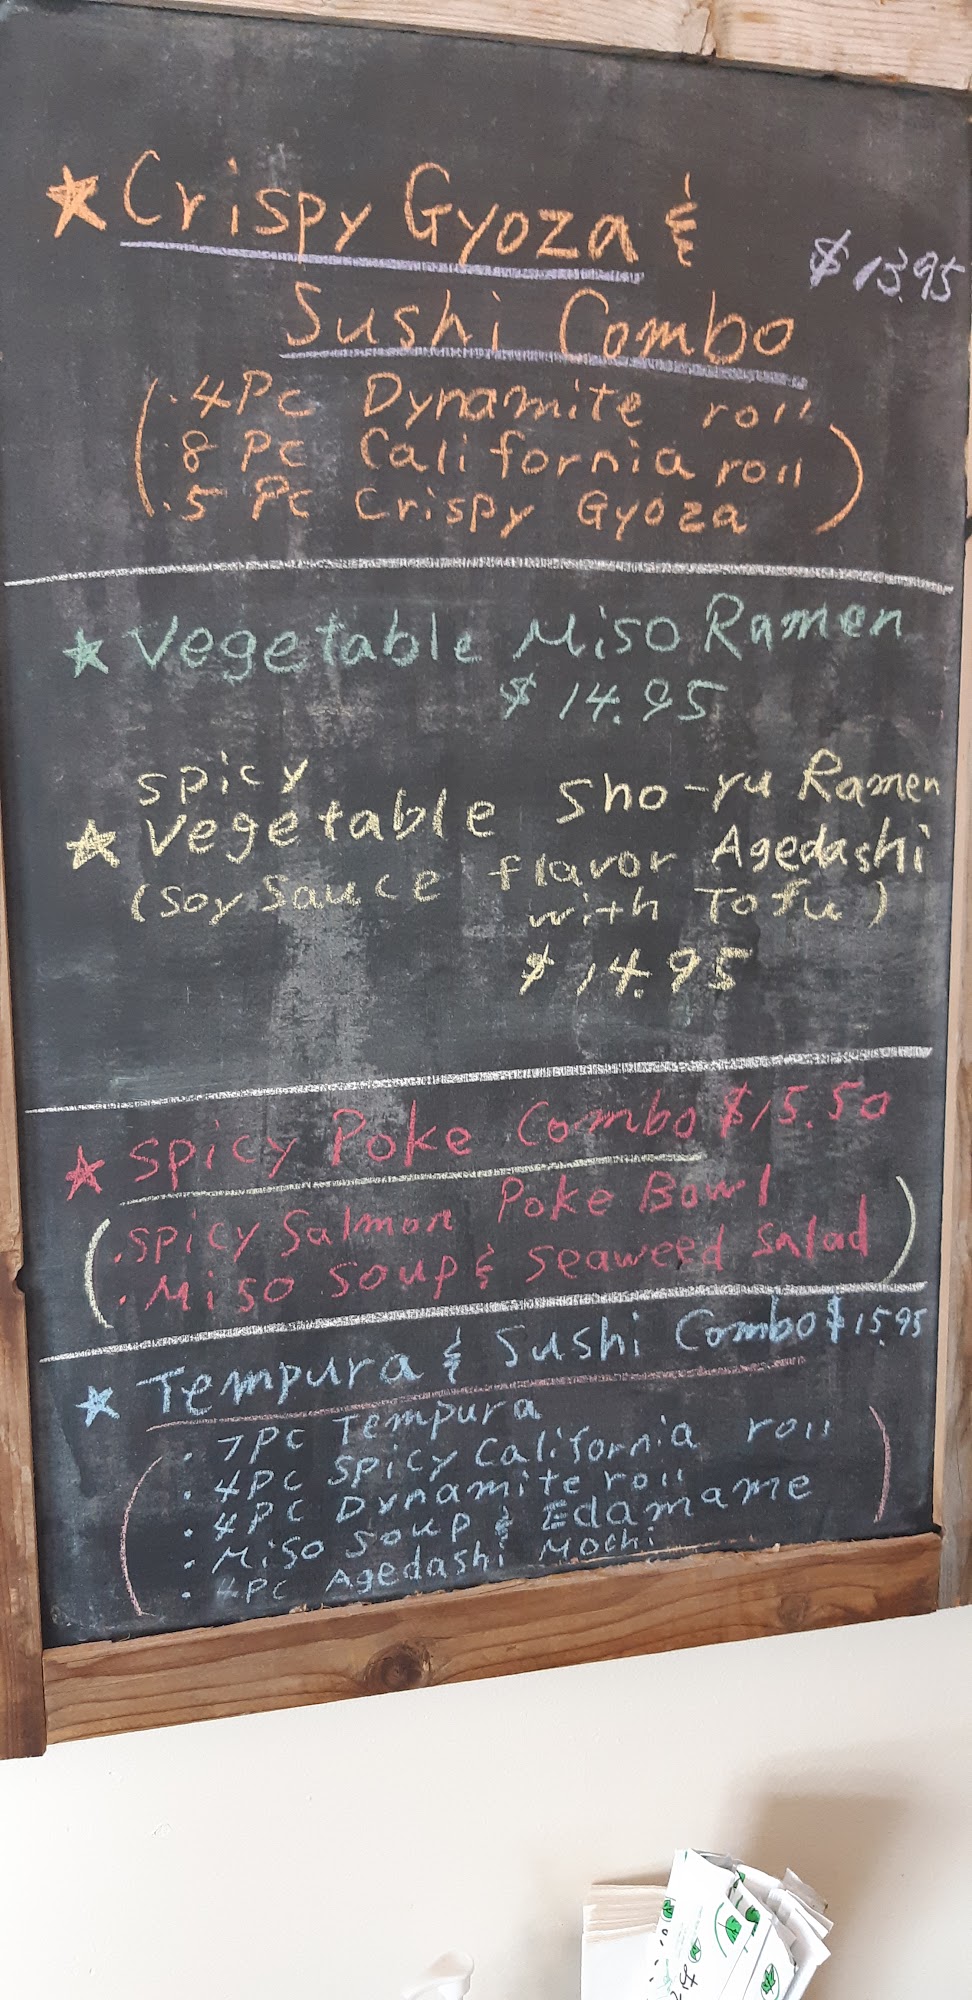 Crispy Gyoza &
$13.95
Sushi Combo
(.4Pc Dynamite roll
.8 Pc California roll
.5 Pc Crispy Gyoza)
Vegetable Miso Ramen
$14.95
Spicy
Vegetable Sho-yu Ramen
(Soy Sauce flavor Agedashi
with Tofu)
$14.95
Spicy Poke Combo $15.50
(.Spicy Salmon Poke Bowl
.Miso Soup & Seaweed Salad)
Tempura & Sushi Combo $15.95
(. 7PC Tempura
. 4PC Spicy California roll
. 4PC Dynamite roll
. Miso Soup & Edamame
. 4PC Agedashi Mochi)